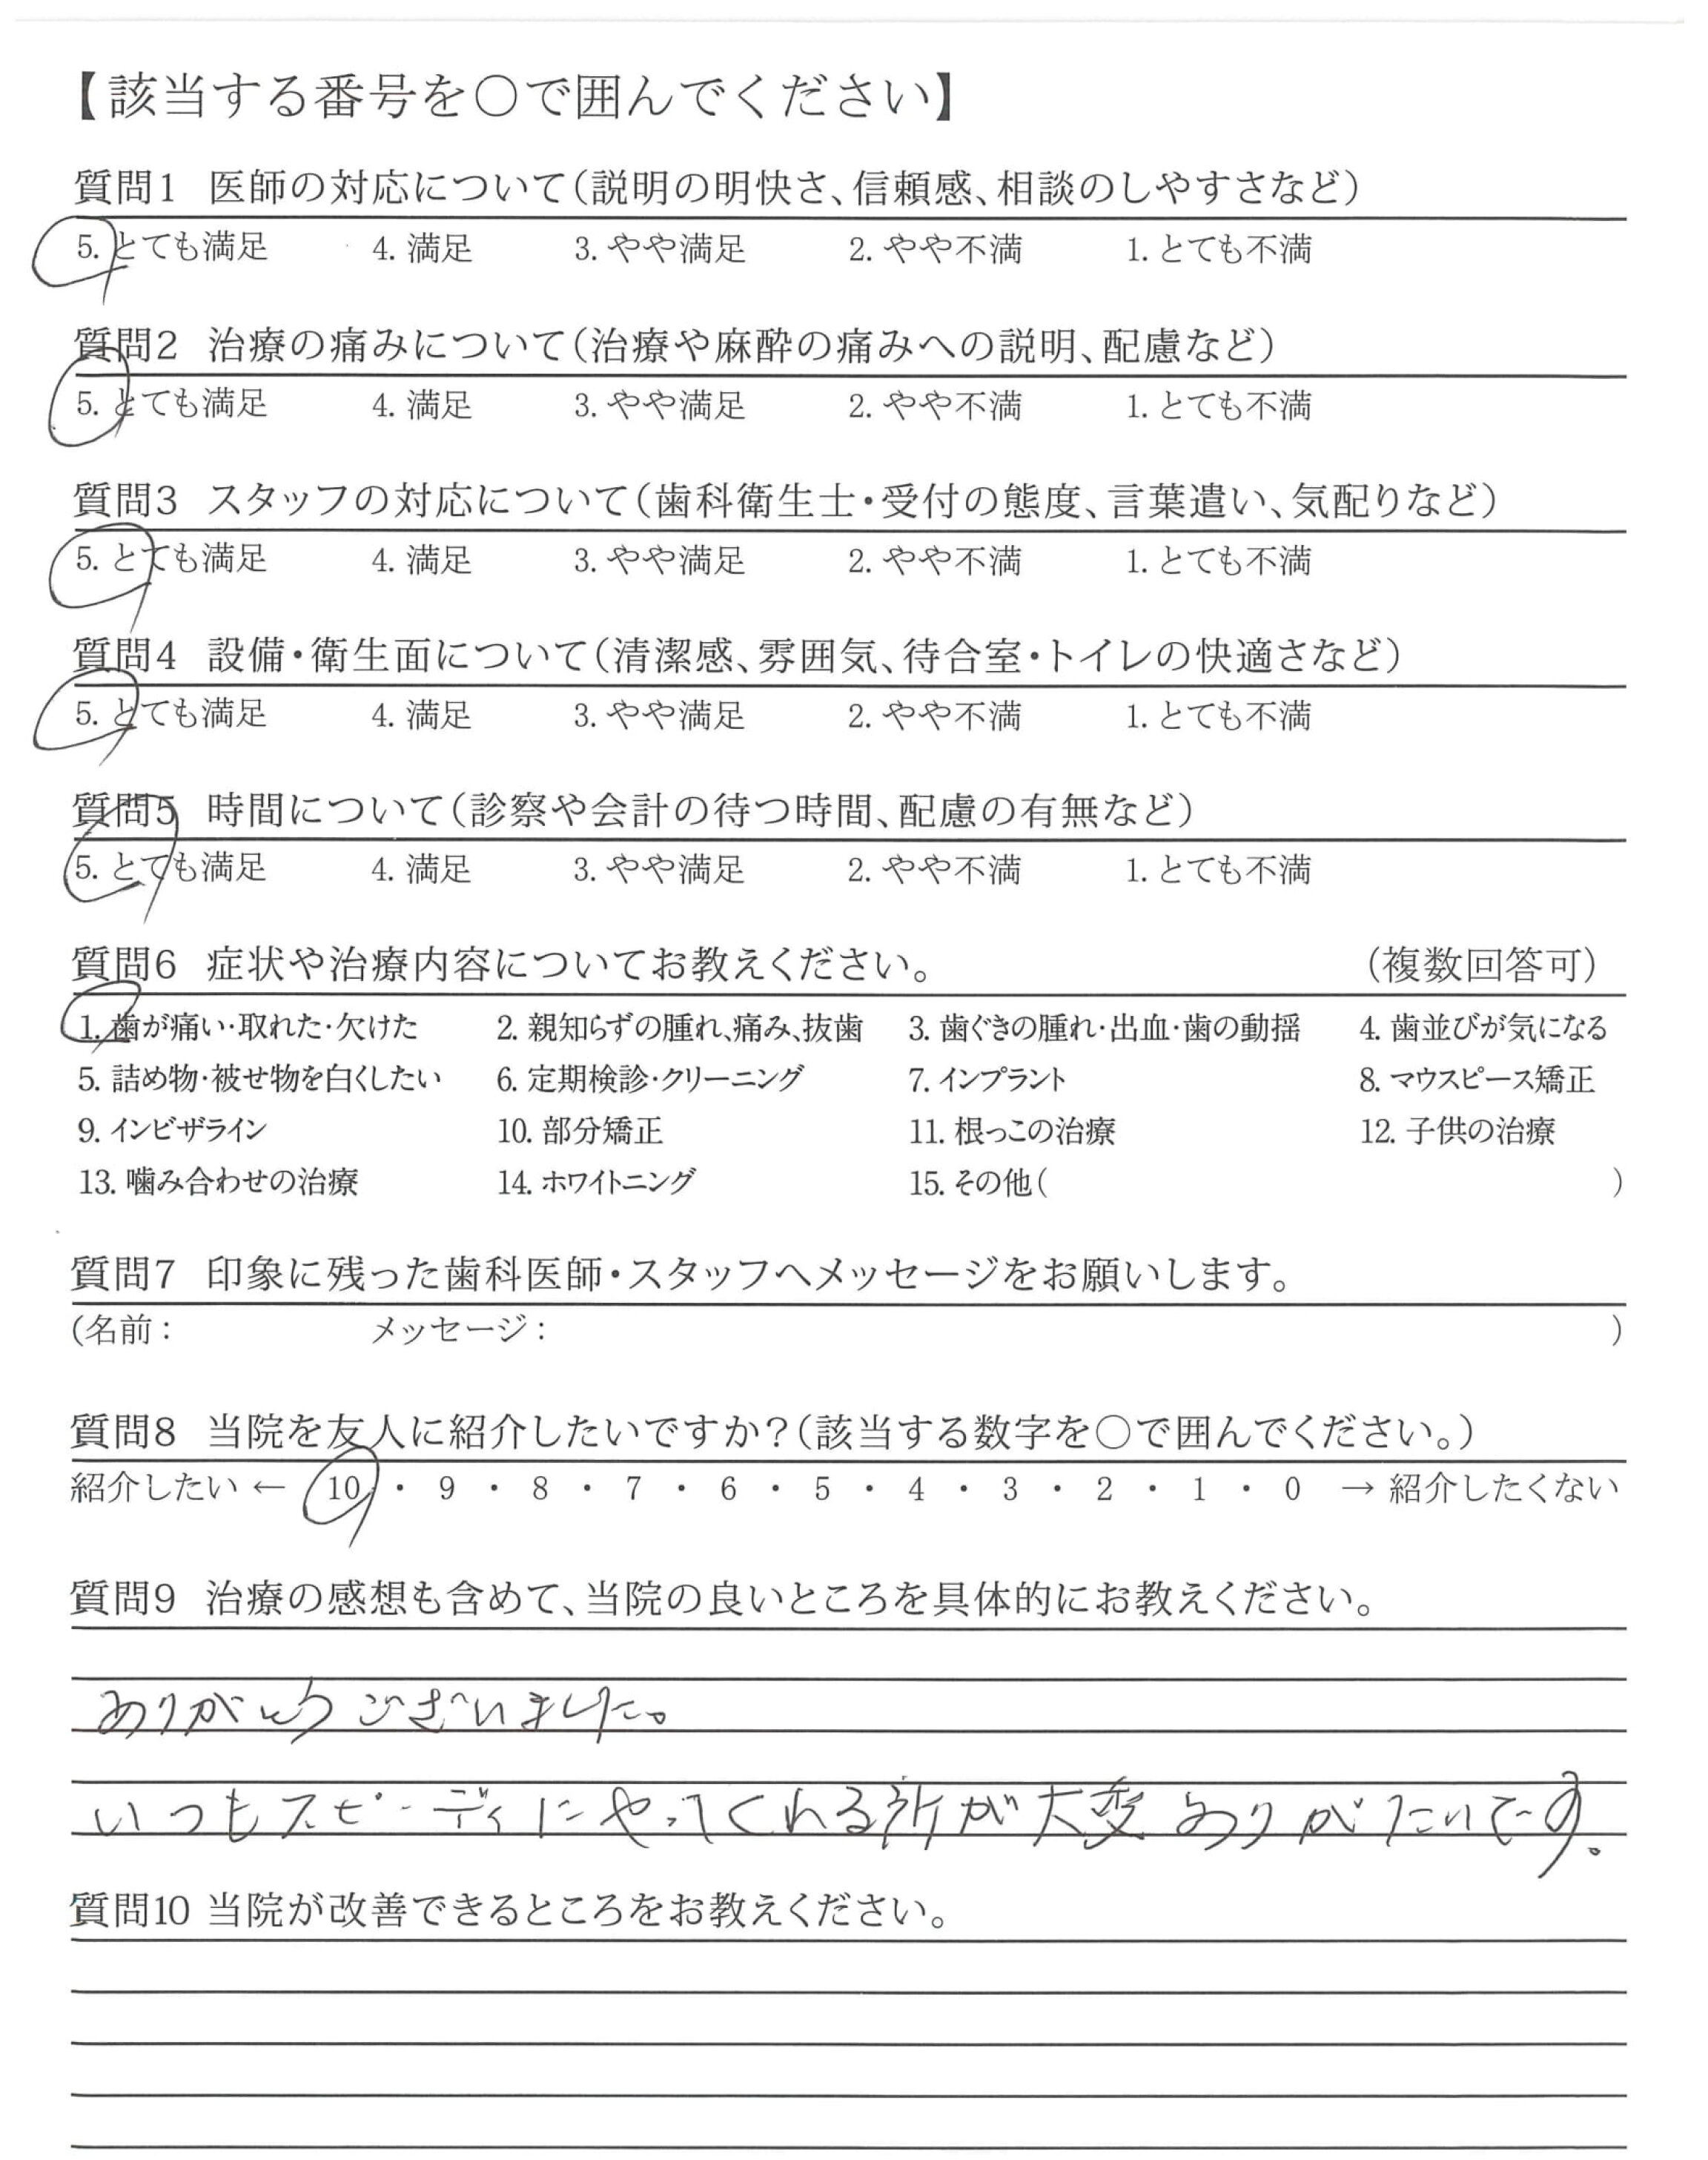 【該当する番号を○で囲んでください】
質問1 医師の対応について(説明の明快さ、信頼感、相談のしやすさなど)
5. とても満足 4. 満足 3. やや満足 2. やや不満 1. とても不満
質問2 治療の痛みについて(治療や麻酔の痛みへの説明、配慮など)
5. とても満足 4. 満足 3. やや満足 2. やや不満 1. とても不満
質問3 スタッフの対応について(歯科衛生士・受付の態度、言葉遣い、気配りなど)
5. とても満足 4. 満足 3. やや満足 2. やや不満 1. とても不満
質問4 設備・衛生面について(清潔感、雰囲気、待合室・トイレの快適さなど)
5. とても満足 4. 満足 3. やや満足 2. やや不満 1. とても不満
質問5 時間について(診察や会計の待つ時間、配慮の有無など)
5. とても満足 4. 満足 3. やや満足 2. やや不満 1. とても不満
質問6 症状や治療内容についてお教えください。 (複数回答可)
1. 歯が痛い・取れた・欠けた 2. 親知らずの腫れ、痛み、抜歯 3. 歯ぐきの腫れ・出血・歯の動揺 4. 歯並びが気になる
5. 詰め物・被せ物を白くしたい 6. 定期検診・クリーニング 7. インプラント 8. マウスピース矯正
9. インビザライン 10. 部分矯正 11. 根っこの治療 12. 子供の治療
13. 噛み合わせの治療 14. ホワイトニング 15. その他( )
質問7 印象に残った歯科医師・スタッフへメッセージをお願いします。
(名前: メッセージ: )
質問8 当院を友人に紹介したいですか?(該当する数字を○で囲んでください。)
紹介したい ← 10 ・ 9 ・ 8 ・ 7 ・ 6 ・ 5 ・ 4 ・ 3 ・ 2 ・ 1 ・ 0 → 紹介したくない
質問9 治療の感想も含めて、当院の良いところを具体的にお教えください。
ありがとうございました。
いつもスピーディにやってくれる所が大変ありがたいです。
質問10 当院が改善できるところをお教えください。